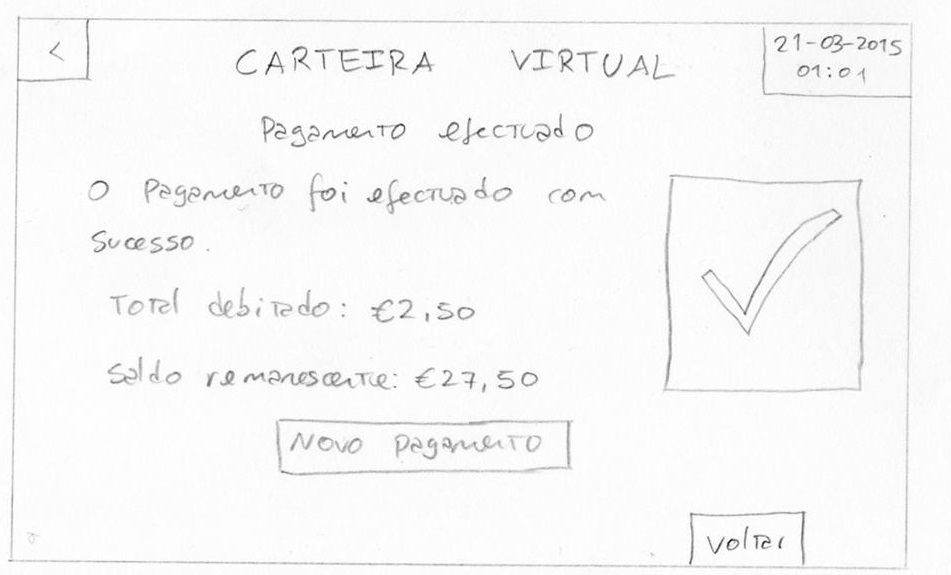 <
CARTEIRA VIRTUAL
21-03-2015
01:01
Pagamento efectuado
O Pagamento foi efectuado com
sucesso.
Total debitado: €2,50
Saldo remanescente: €27,50
Novo pagamento
Voltar